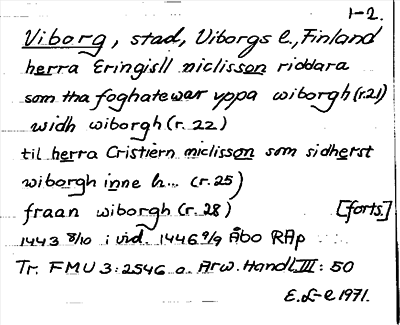 1-2.
Viborg, stad, Viborgs l., Finland
herra Eringisll niclisson riddara
som tha foghate war vppa wiborgh (r.21)
widh wiborgh (r. 22)
til herra Cristiern niclisson som sidherst
wiborgh inne h... (r. 25)
fraan wiborgh (r. 28) [forts.]
1443 8/10 i vid. 1446 9/9 Åbo RAp
Tr. FMU 3:2546 o. Arw. Handl. III: 50
E. L-e 1971.